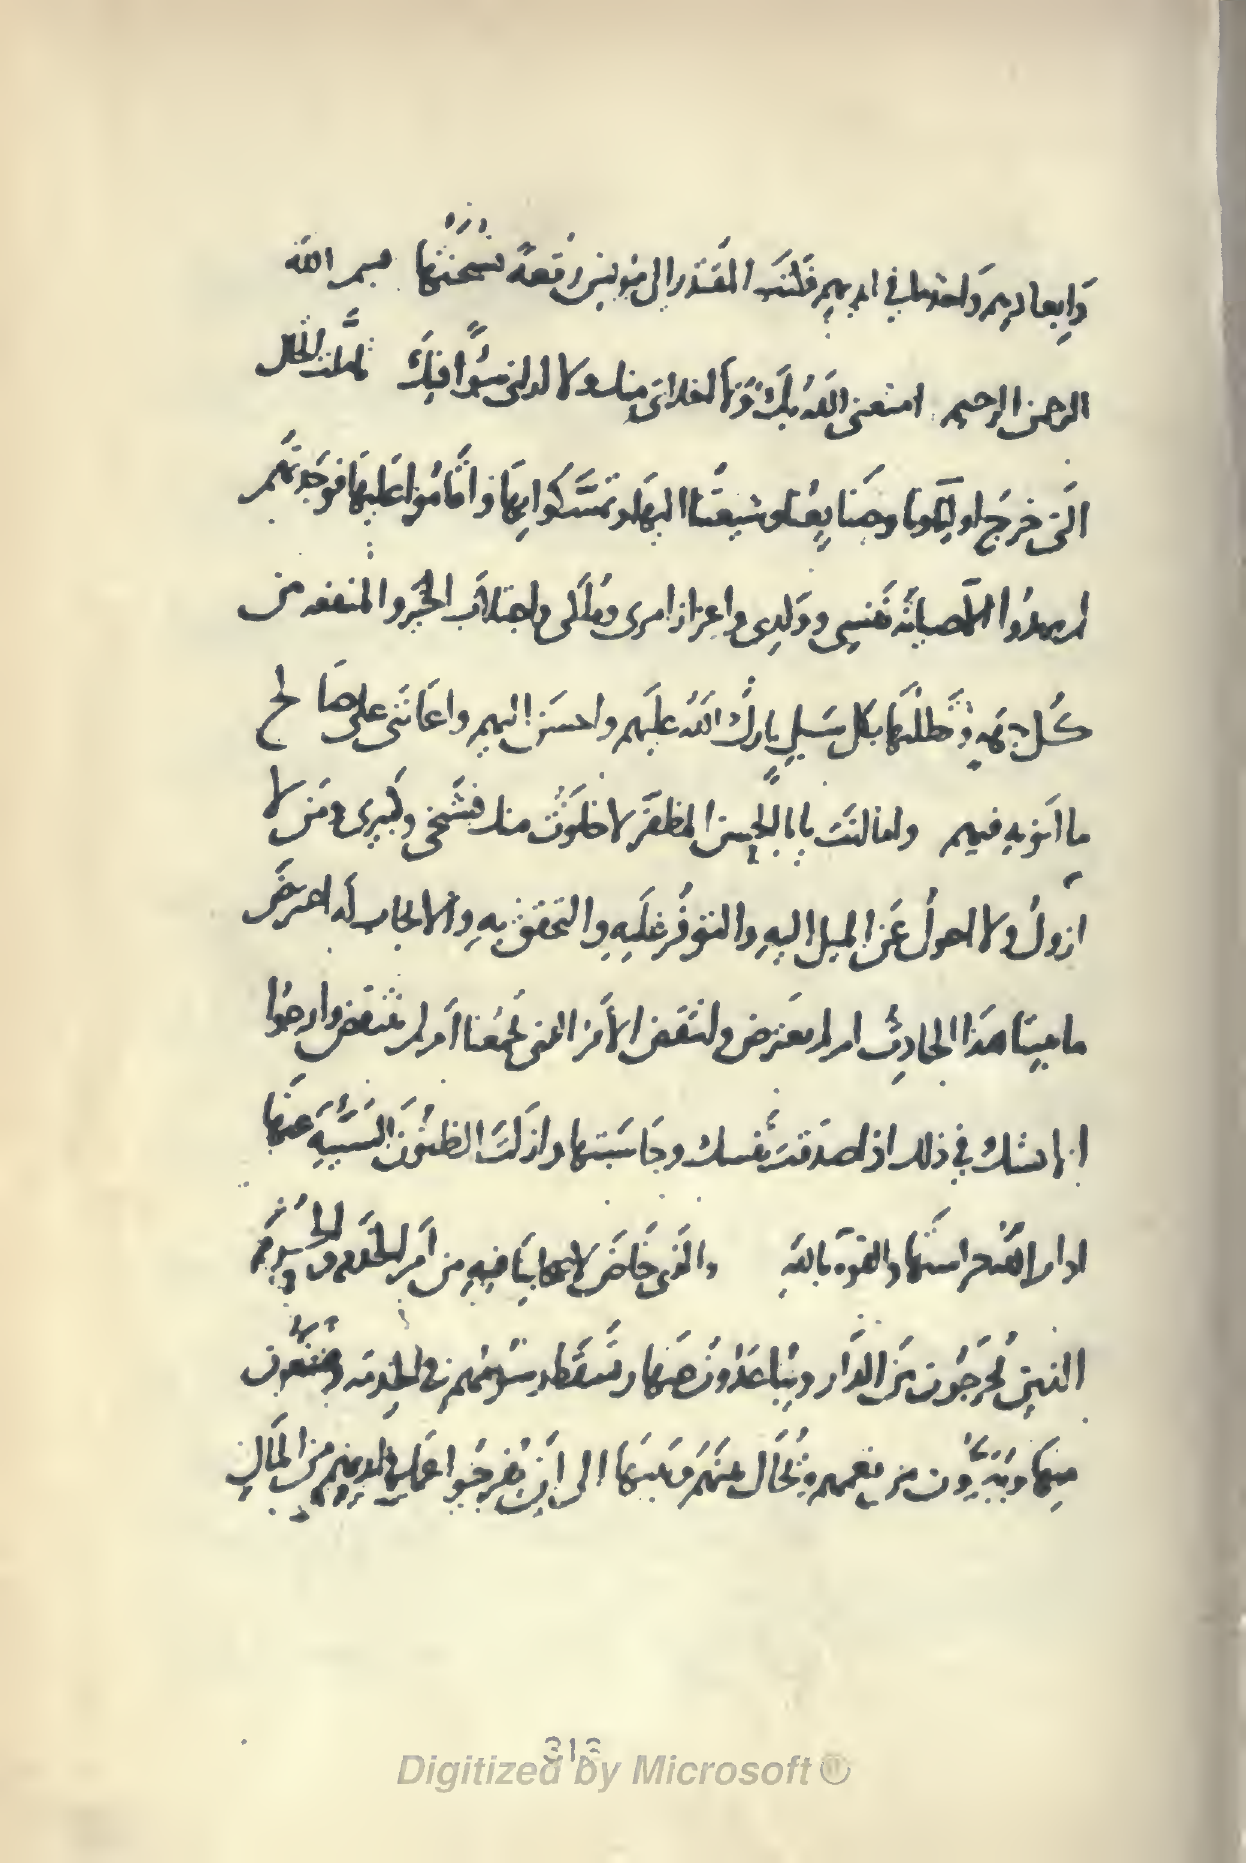 وابعادهم واخذ ما في ايديهم فكتب المقتدر الى مونس رقعة نسختها بسم الله
الرحمن الرحيم امتعني الله بك ولا اخلاني منك ولا اراني سوًا فيك تاملت الحال
التي خرج اولياونا وصنايعنا وشيعتنا اليها وتمسكوا بها واقاموا عليها فوجدتهم
لم يريدوا الا صيانة نفسي وولدي واعزاز امري وملكي واجتلاب الخير والمنفعه من
كل جهه وطلبها بكل سبيل بارك الله عليهم واحسن اليهم واعانني على صالح
ما انويه فيهم واما انت يابا الحسن المظفر لا خلوت منك فشيخي وكبيري ومن لا
ازول ولا احول عن الميل اليه والتوفر عليه والتحقق به والايجاب له اعترض
ما بيننا هذا الحادث ام لم يعترض وانتقض الامر الذي يجمعنا ام لم ينتقض وارجوا
الا تشك في ذلك اذا صدقت نفسك وحاسبتها وازلت الظنون السيئه عنها
ادام الله حراستها والقوة بالله والذي خاض اصحابنا فيه من امر الخدم والحرم
الذين يخرجون من الدار ويباعدون عنها وتسقط رسومهم في الخدمة ويمنعون
منها ويبرون من نعمهم ويحال بينهم وبينها الى ان يفرجوا عما في ايديهم من المال
313
Digitized by Microsoft ®